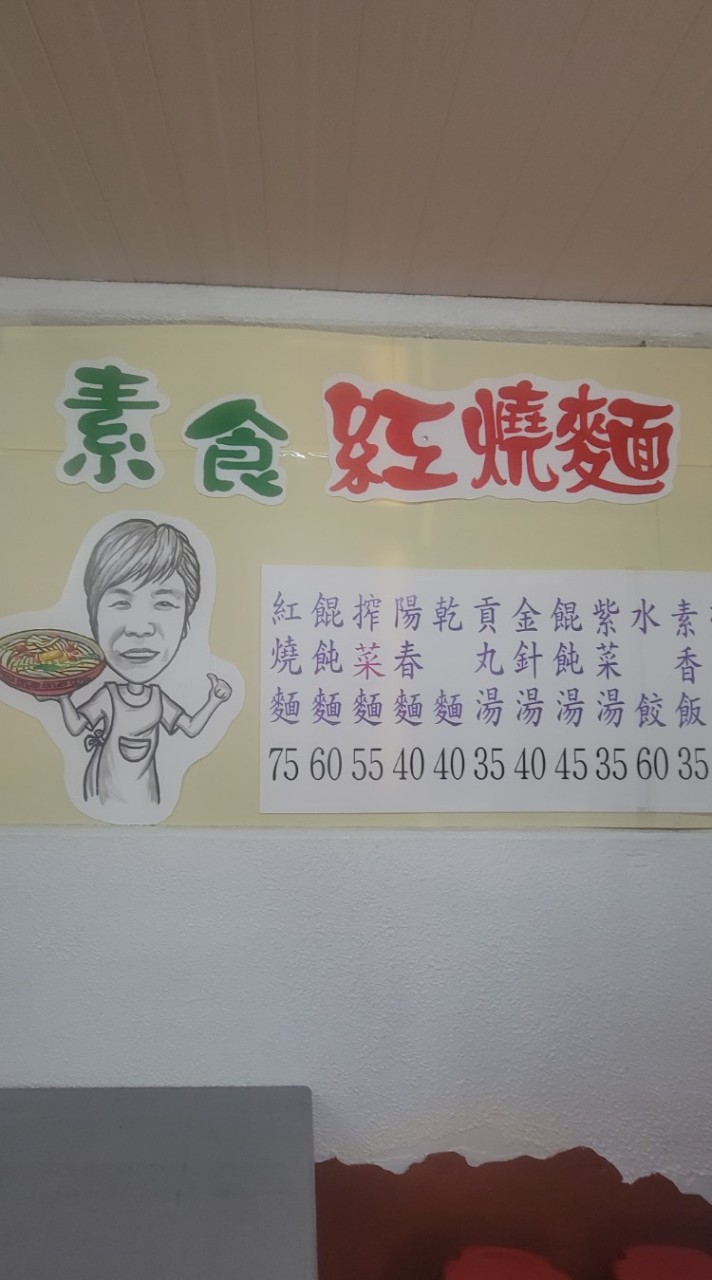 素食紅燒麵
紅燒麵 75
餛飩麵 60
搾菜麵 55
陽春麵 40
乾麵 40
貢丸湯 35
金針湯 40
餛飩湯 45
紫菜湯 35
水餃 60
素香飯 35